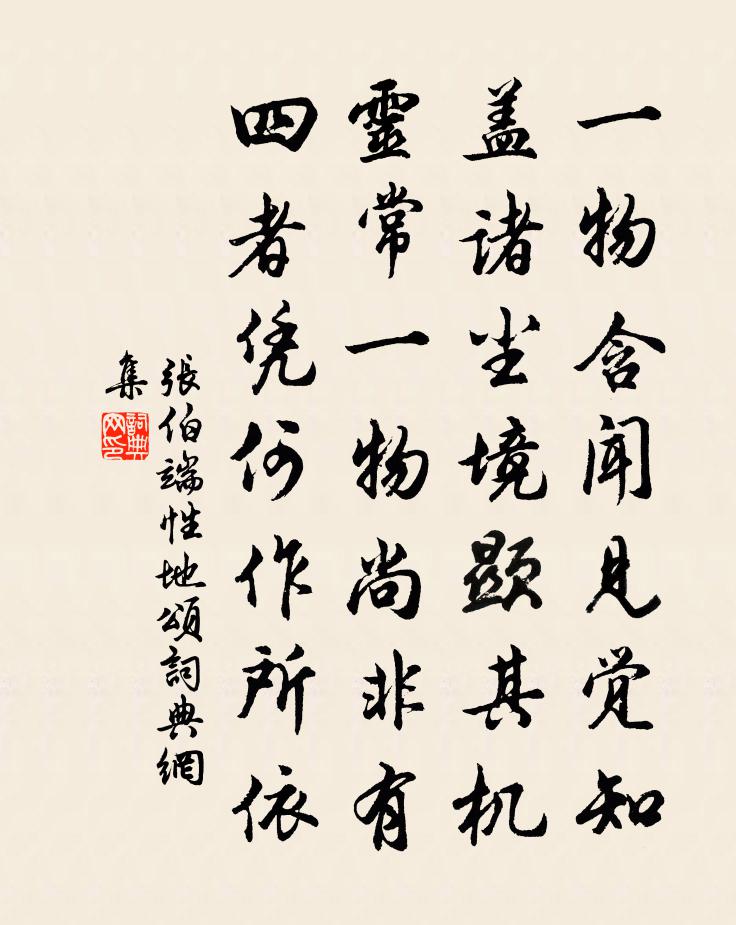 一物含闻见觉知
盖诸尘境显其机
靈常一物尚非有
四者凭何作所依
張伯端性地頌詞典網
集
詞典网印